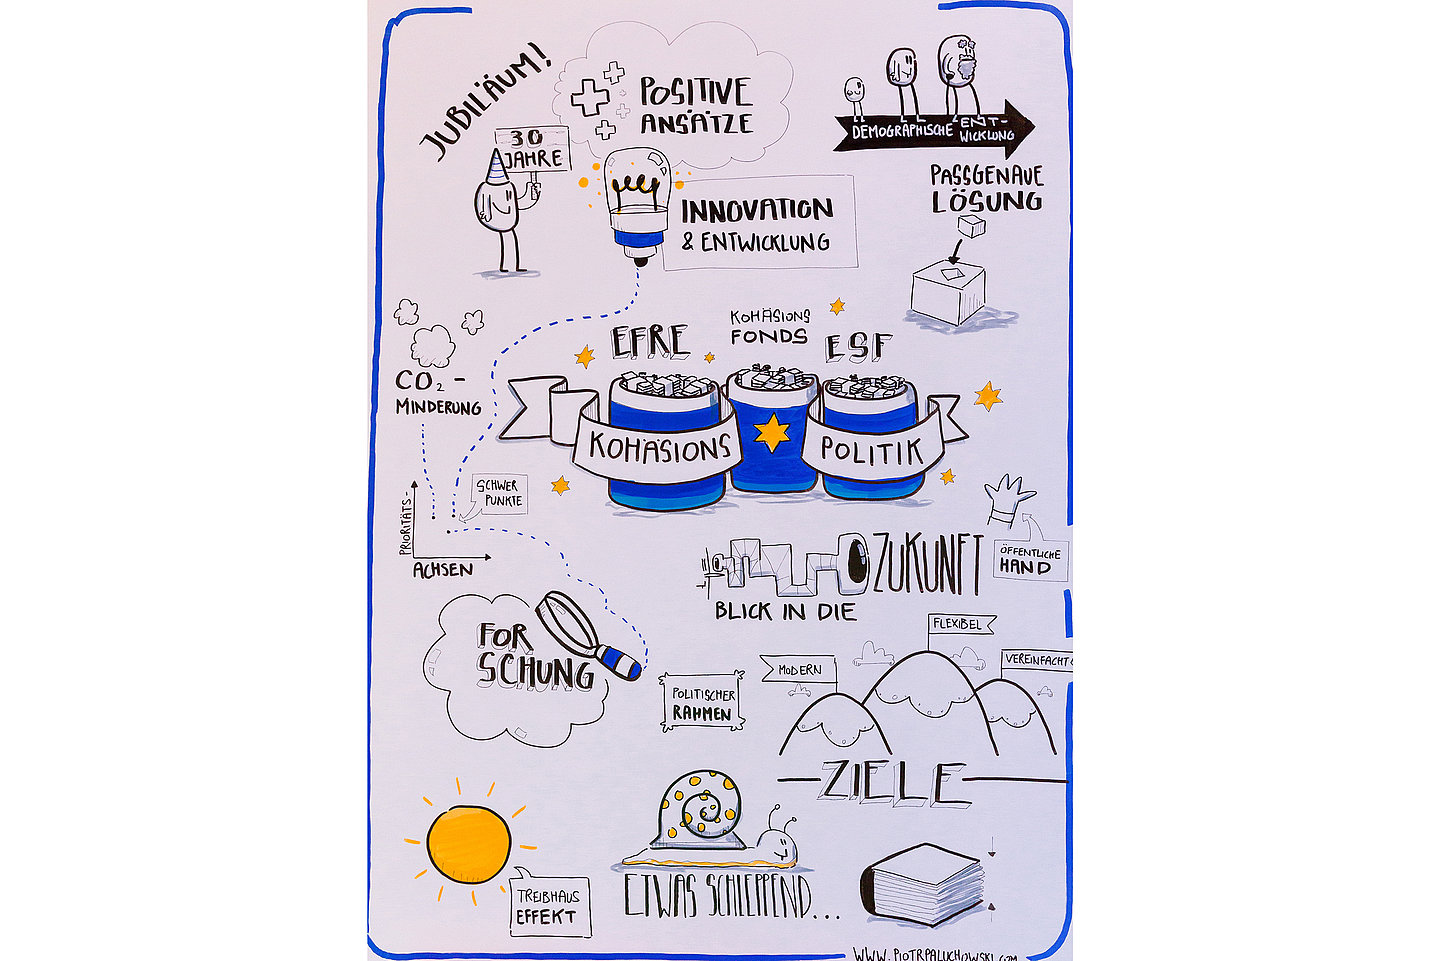 JUBILÄUM!
30
JAHRE
POSITIVE
ANSÄTZE
INNOVATION
& ENTWICKLUNG
DEMOGRAPHISCHE ENT-
WICKLUNG
PASSGENAUE
LÖSUNG
CO2-
MINDERUNG
EFRE
KOHÄSIONS
FONDS
ESF
KOHÄSIONS
POLITIK
SCHWER
PUNKTE
PRIORITÄTS-
ACHSEN
ZUKUNFT
BLICK IN DIE
ÖFFENTLICHE
HAND
FOR
SCHUNG
POLITISCHER
RAHMEN
FLEXIBEL
MODERN
VEREINFACHT
ZIELE
TREIBHAUS
EFFEKT
ETWAS SCHLEPPEND...
WWW.PIOTRPALUCHOWSKI.COM